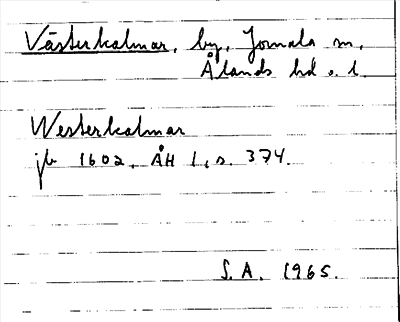 Västerkalmar, by, Jomala sn,
Ålands hd o. l.
Westerkalmar
jb 1602, ÅH 1, s. 374.
S. A. 1965.